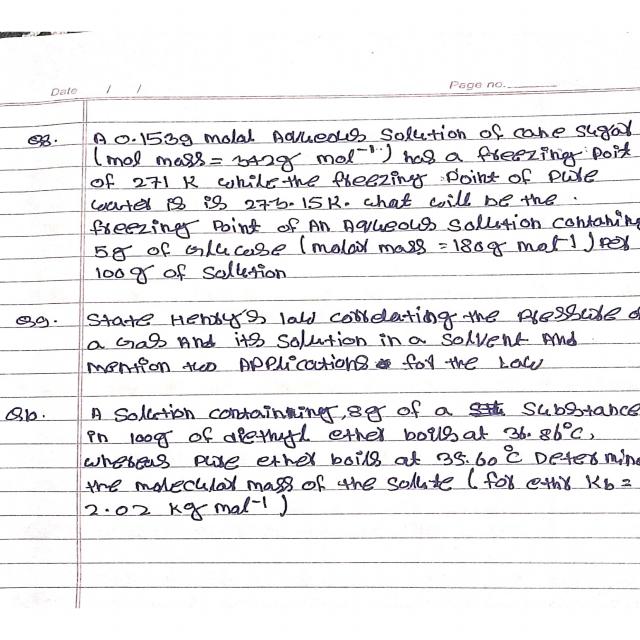 Date / / Page no.
Q8. A 0.1539 molal Aqueous Solution of cane sugar
(mol mass = 342g mol⁻¹) has a freezing Poit
of 271 K while the freezing Point of Pure
water is is 273.15K. what will be the
freezing Point of An Aqueous Sollution containing
5g of Glucose (molar mass = 180g mol-1) Per
100g of Sollution
Q9. State Henry's law correlating the Pressure o
a Gas And its Sollution in a Solvent And
mention two APPlications for the Law
Q10. A Sollution containning, 8g of a Substance
in 100g of diethyl ether boils at 36.86°C,
whereas Pure ether boils at 35.60°C Determine
the molecular mass of the Solute (for ether Kb =
2.02 Kg mol-1)